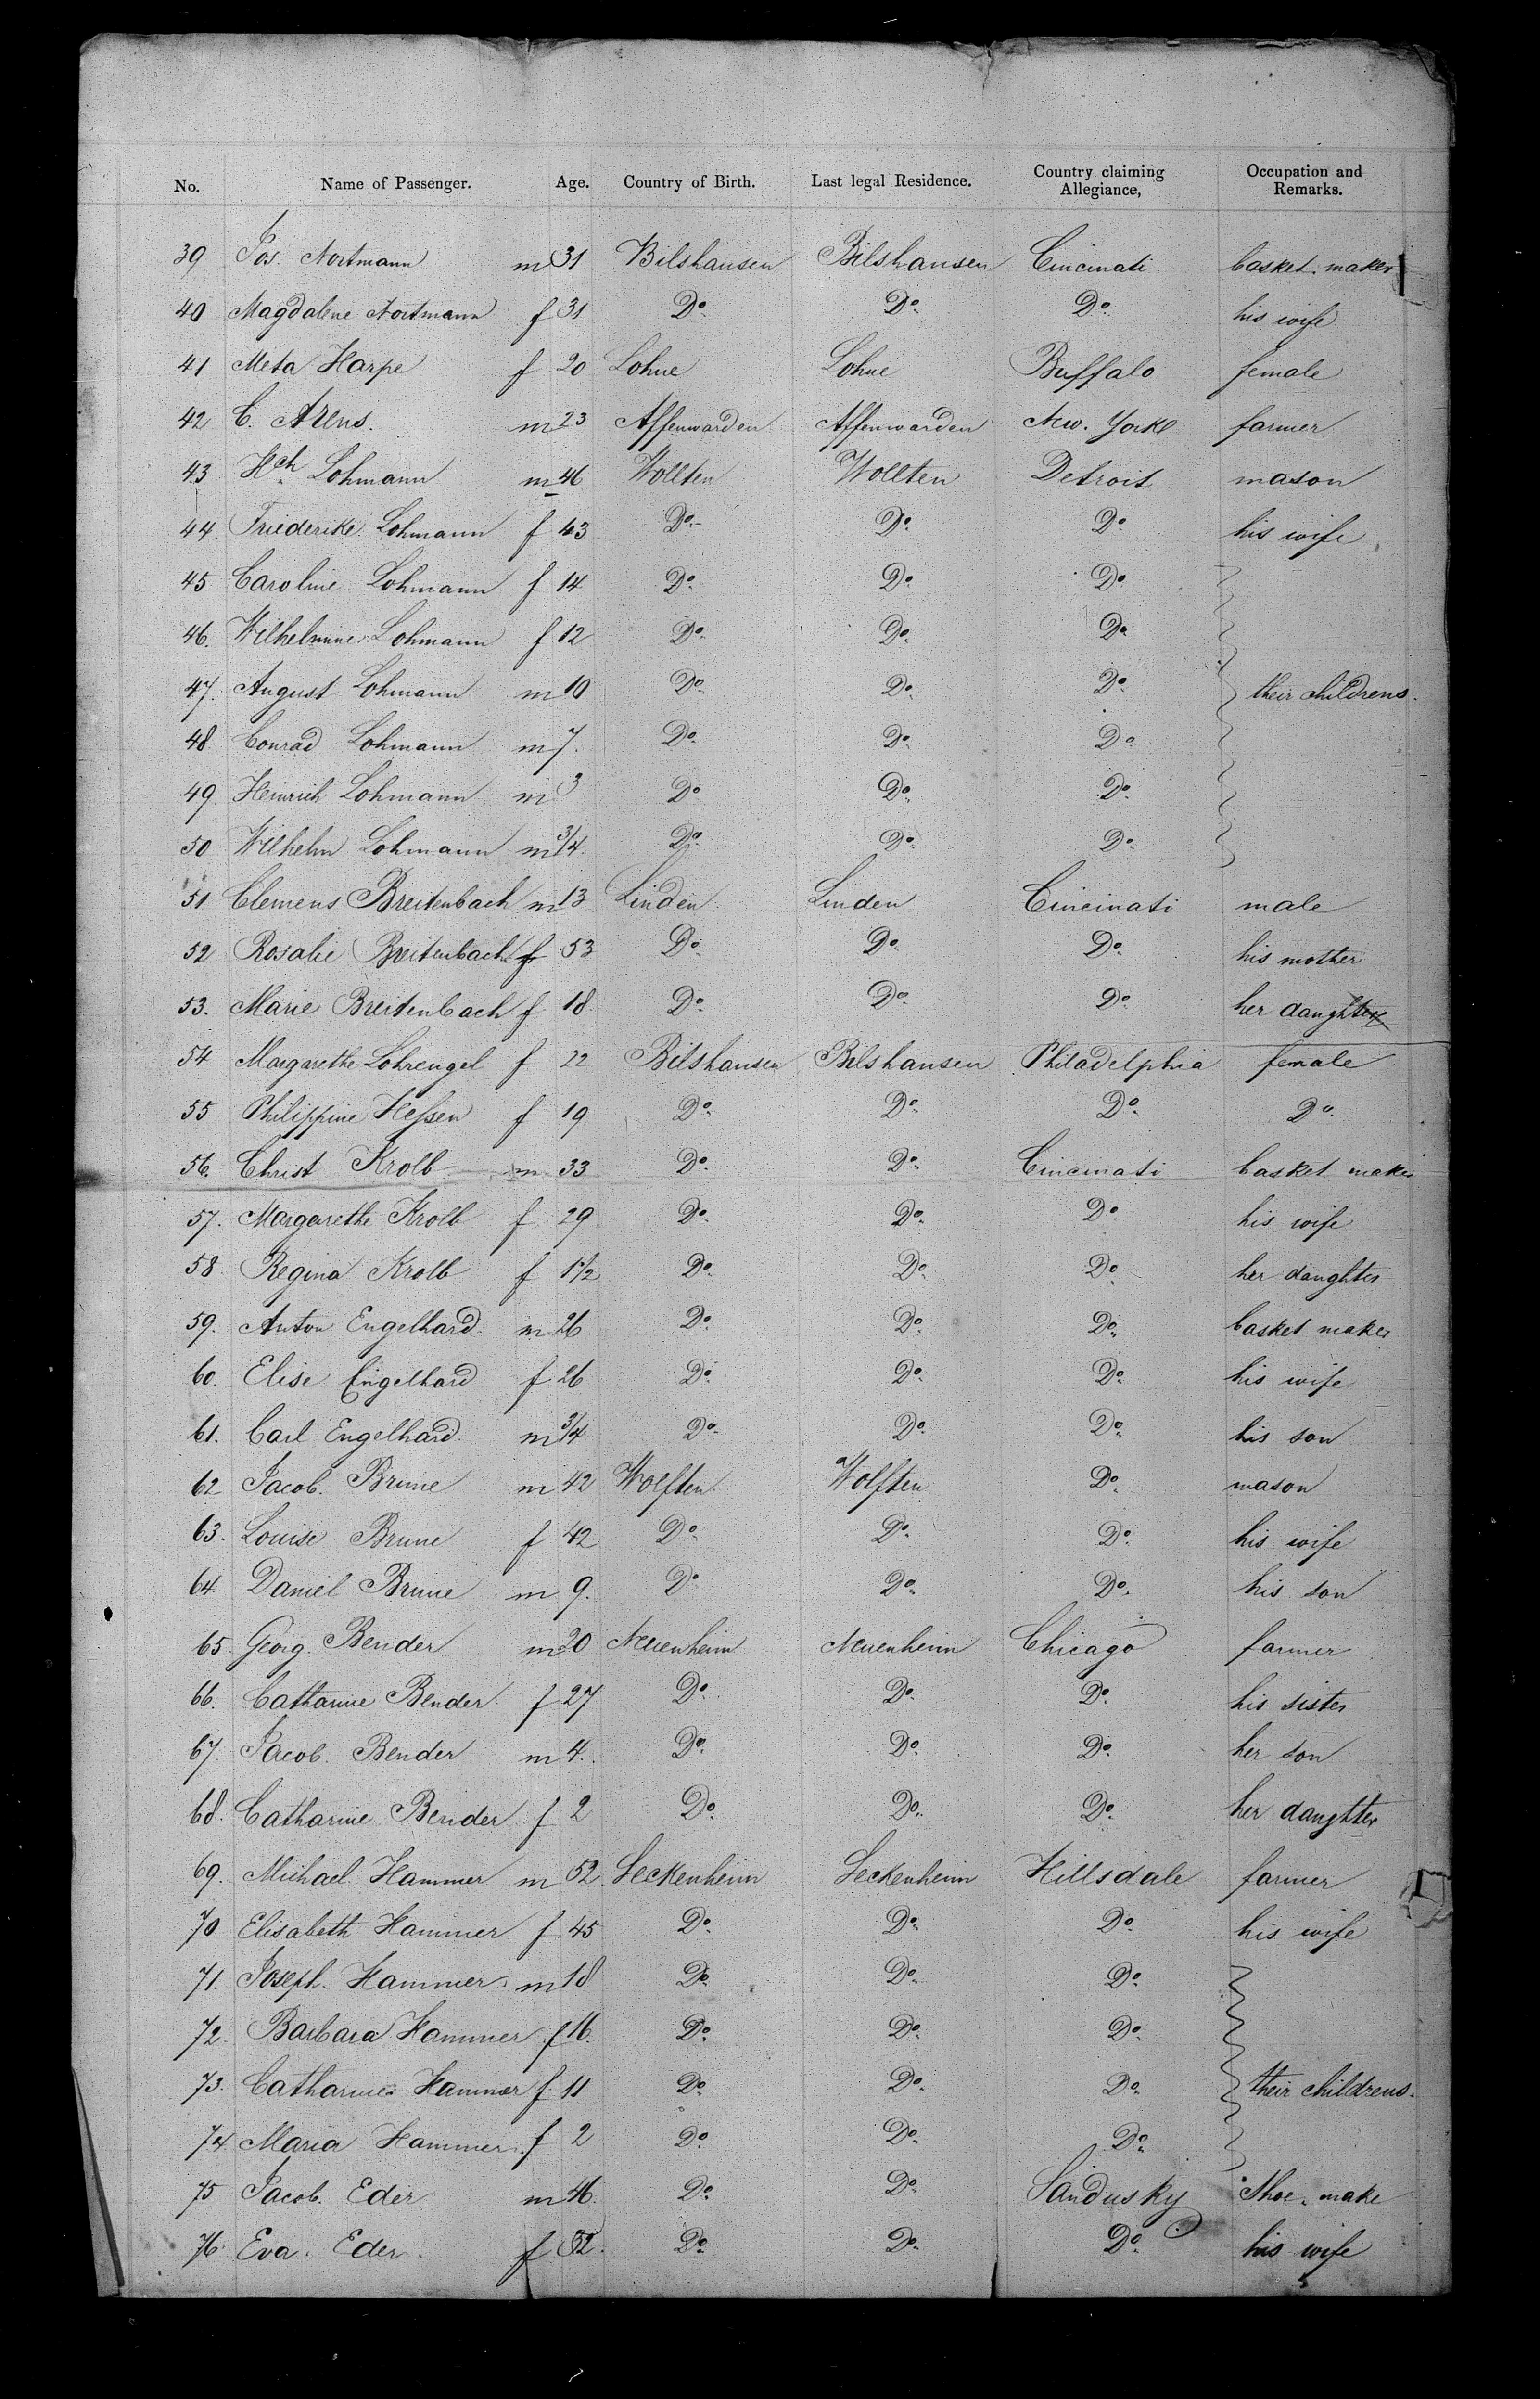 No. Name of Passenger. Age. Country of Birth. Last legal Residence. Country claiming Allegiance, Occupation and Remarks.
39 Jos. Nortmann m 31 Bilshausen Bilshausen Cincinati basket maker
40 Magdalene Nortmann f 31 Do. Do. Do. his wife
41 Meta Harpe f 20 Lohne Lohne Buffalo female
42 C. Arens. m 23 Affenwarden Affenwarden New. York farmer
43 Hch. Lohmann m 46 Wollten Wollten Detroit mason
44. Friederike Lohmann f 43 Do. Do. Do. his wife
45 Caroline Lohmann f 14 Do. Do. Do.
46. Wilhelmine Lohmann f 12 Do. Do. Do.
47. August Lohmann m 10 Do. Do. Do. their childrens.
48. Conrad Lohmann m 7. Do. Do. Do.
49. Heinrich Lohmann m 3 Do Do. Do.
50 Wilhelm Lohmann m 3/4. Do. Do. Do.
51 Clemens Breitenbach m 13 Linden Linden Cincinati male
52 Rosalie Breitenbach f 53 Do. Do. Do. his mother
53. Marie Breitenbach f 18 Do. Do. Do. her daughter
54 Margarethe Lohrengel f 22 Bilshausen Bilshausen Philadelphia female
55 Philippine Hessen f 19 Do. Do. Do. Do.
56. Christ Krolb m 33 Do. Do. Cincinati basket maker
57. Margarethe Krolb f 29 Do. Do. Do. his wife
58 Regina Krolb f 1 1/2 Do. Do. Do. her daughter
59. Anton Engelhard. m 26 Do. Do. Do. basket maker
60. Elise Engelhard f 26 Do. Do. Do. his wife
61. Carl Engelhard. m 3/4 Do. Do. Do. his son
62 Jacob. Brune m 42 Wolften Wolften Do. mason
63. Louise Brune f 42 Do. Do. Do. his wife
64. Daniel Brune m 9. Do Do. Do. his son
65. Georg. Bender m 20 Neuenheim Neuenheim Chicago farmer
66. Catharine Bender f 27 Do. Do. Do. his sister
67. Jacob. Bender m 4. Do. Do. Do. her son
68. Catharine Bender f 2 Do. Do. Do. her daughter
69. Michael Hammer m 52 Seckenheim Seckenheim Hillsdale farmer
70 Elisabeth Hammer f 45 Do. Do. Do. his wife
71. Joseph. Hammer m 18 Do. Do. Do.
72. Barbara Hammer f 16. Do. Do. Do.
73. Catharine Hammer f 11 Do. Do. Do. their childrens.
74. Maria Hammer f 2 Do. Do. Do.
75 Jacob. Eder m 46. Do. Do. Sandusky Shoe. make
76. Eva. Eder. f 52. Do. Do. Do. his wife